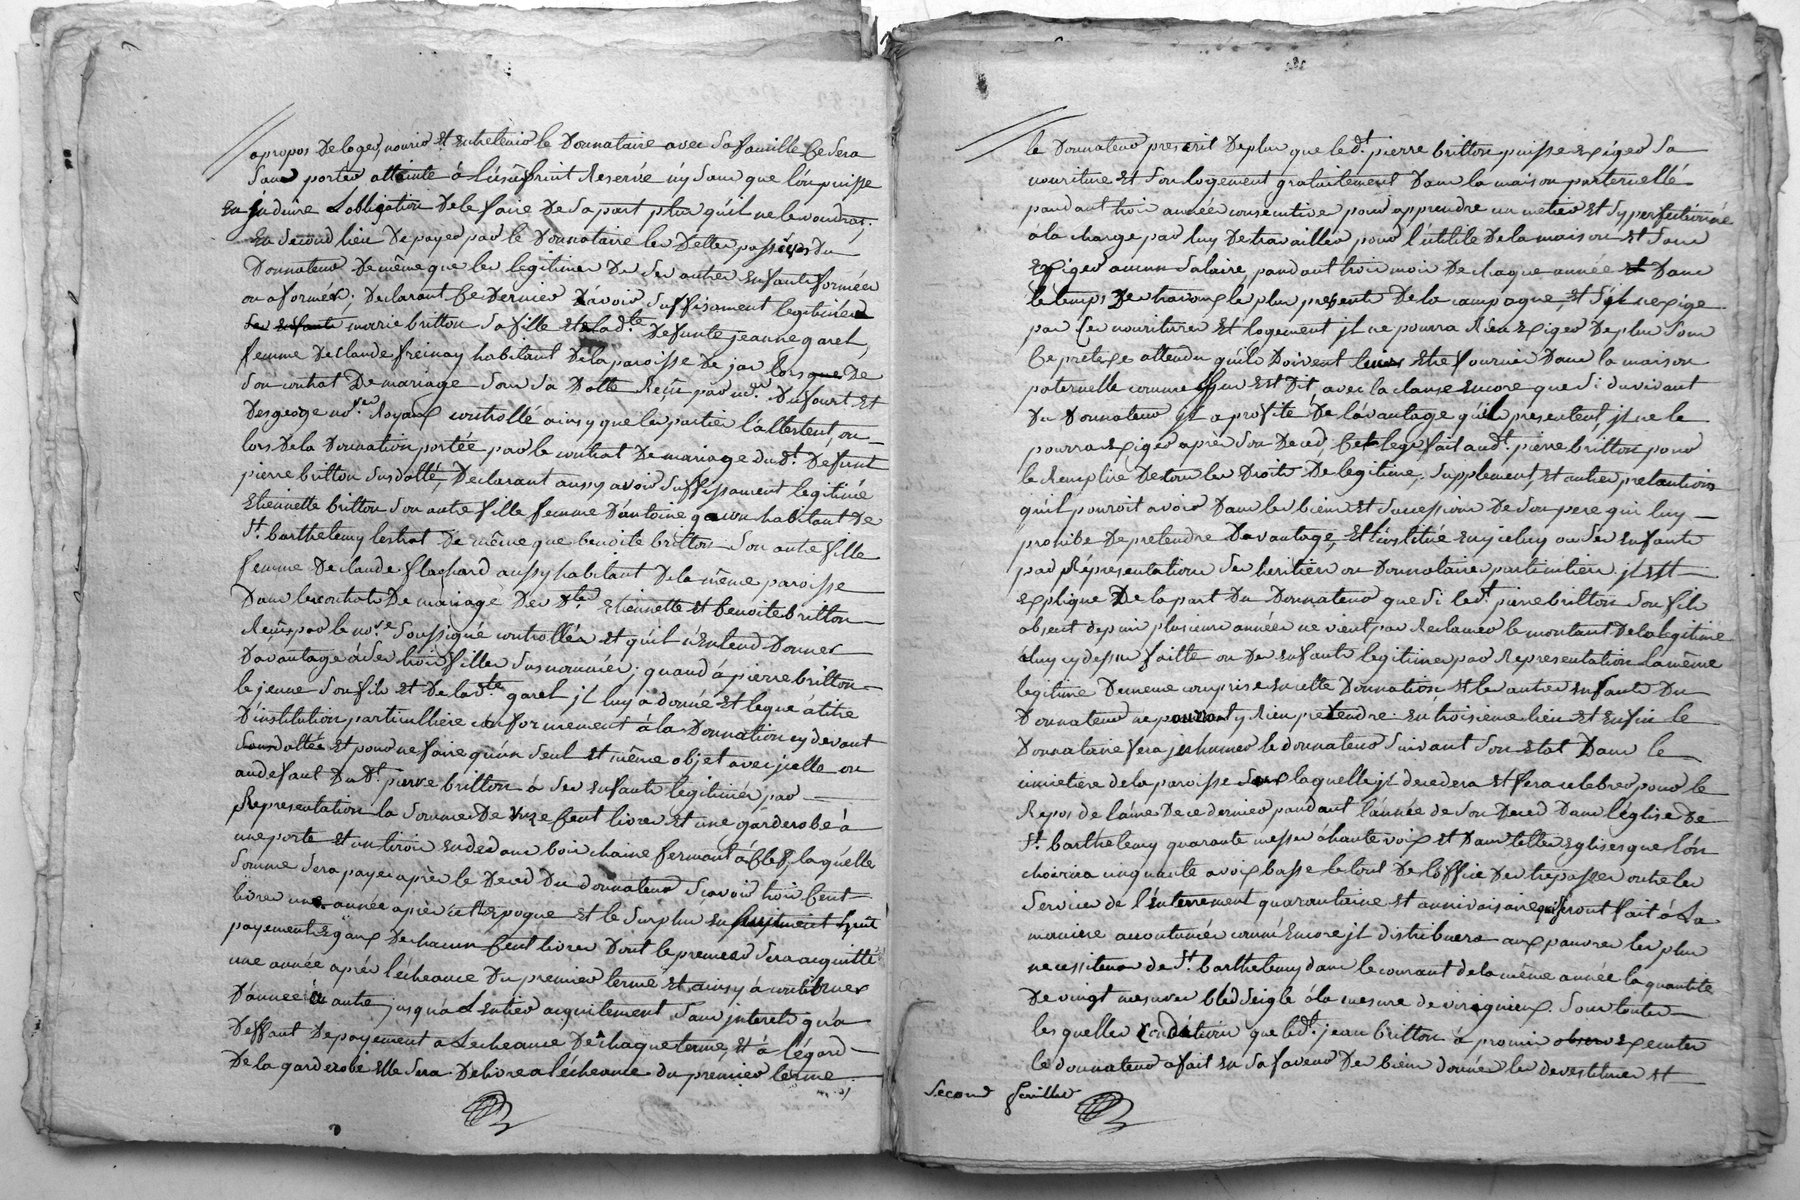 apropos De loger, nourir Et Entretenir le Donnataire avec Sa famille Ce Sera
Sans porter atteinte à l'usufruit Reservé ny Sans que l'on puisse
En induire L'obligation De le faire De Sa part plus qu'il ne le voudras;
En Second lieu De payer par le Donnataire les Dettes passives Du
Donnateur De même que les legitimes De Ses autres Enfants formées
ou a former; Declarant Ce Dernier D'avoir Suffisament legitimée
marie britton Sa fille et de lad.te Defunte jeanne garel,
femme De Claude freinay habitant De la paroisse De jas lorsque De
Son contrat De mariage Sous Sa Dotte Reçu par m.e Dufourt Et
Desgeorge no.re Royaux controllé ainsy que les parties l'attestent, ou
lors De la Donnation portée par le contrat De mariage du d.t Defunt
pierre britton Susdotté, Declarant aussy avoir Suffisament legitimée
Etiennette britton Son autre fille femme D'antoine habitant De
S.t barthelemy lestrat De même que benoite britton Son autre fille
femme De claude flachard aussy habitant De la même paroisse
Dans les contrats De mariage Des d.tes Etiennette Et Benoite britton
Reçus par le no.re Soussigné controllés Et qu'il n'Entend Donner
D'avantage à Ses trois filles Susnommées; quand à pierre britton
le jeune Son fils Et De lad.te garel jl luy a donné Et legue à titre
D'institution particulliere conformement à la Donnation cy devant
Et pour ne faire qu'un Seul Et même objet avec jcelle ou
au defaut Du d.t pierre britton à Ses Enfants legitimes par
Representation la Somme De onze Cent livres Et une garderobe à
une porte Et un tiroir En dedans bois chaine fermant à Clef, laquelle
Somme Sera payée après le Deced Du donnateur Sçavoir trois Cent
livres une année après cette Epoque Et le Surplus En huit
payements Egaux De chacun Cent livres Dont le premier Sera acquitté
une année après l'écheance Du premier terme Et ainsy à continuer
D'année En autre jusqu'à L'entier acquitement Sans jnterets qu'a
Deffaut De payement a L'echeance De chaque terme, Et à l'égard
De la garderobe Elle Sera Delivrée a l'écheance du premier terme
le Donnateur prescrit De plus que le d.t pierre britton puisse Exiger Sa
nouriture Et Son logement gratuitement Dans la maison paternelle
pandant trois années consecutives pour apprendre un metier Et S'y perfectionner
à la charge par luy De travailler pour l'utilité De la maison Et Sans
Exiger aucun Salaire, pandant trois mois De chaque année Dans
le temps De travaux les plus pressents De la campagne, Et S'il n'exige
pas Ses nouritures Et logement jl ne pourra Rien Exiger De plus Sous
Ce pretexe attendu qu'ils Doivent Etre fournis Dans la maison
paternelle comme Est Dit, avec la clause Encore que Si du vivant
Du Donnateur jl a profité De l'avantage qu'ils presentent, jl ne le
pourra Exiger après Son Deced, Cet legs fait aud.t pierre britton pour
le Remplire De tous les Droits De legitime, Supplement, Et autres pretantions
qu'il pouroit avoir Dans les biens Et Successions De Son pere qui luy
prohibe De pretendre D'avantage, Et l'institue En jceluy ou Ses Enfants
par Répresentation Ses heritiers ou Donnataires particuliers. jl Est
Explique De la part Du Donnateur que Si led.t pierre britton Son fils
absent depuis plusieurs années ne vient pas Reclamer le montant De la legitime
à luy cy dessus faitte ou De Enfants legitimes par Representation la même
legitime Demeure comprise En cette Donnation Et les autres Enfants Du
Donnateur ne pouront y Rien pretendre. En troisieme lieu Et Enfin le
Donnataire fera jnhumer le donnateur Suivant Son Etat Dans le
cimetiere de la paroisse laquelle jl decedera Et fera celebrer pour le
Repos de l'âme De ce dernier pandant l'année de Son Deced Dans l'église De
S.t barthelemy quarante messes à haute voix Et Dans telles Eglises que l'on
choisira cinquante a voix basse le tout De l'office Des trepasses outre les
Services de l'Enterrement quarantaine Et annivaisaire qui Seront fait à La
maniere accoutumée comme Encore jl distribuera aux pauvres les plus
necessiteux de S.t barthelemy dans le courant de la même année la quantité
De vingt mesures bled Seigle à la mesure de virignieux. Sous toutes
lesquelles condition que led.t jean britton à promis Executer
le donnateur a fait En Sa faveur Des biens donnés les devestitures Et
Second feuillet